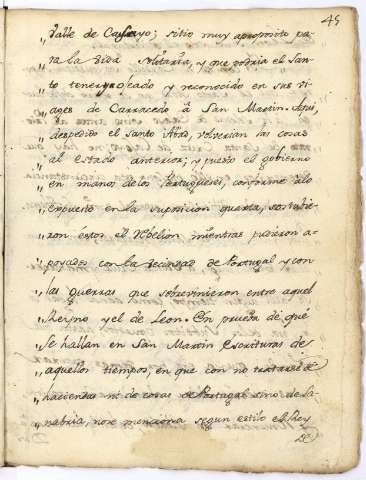 45
„ Valle de Casayo; sitio muy aproposito pa-
„ ra la vida solitaria, y que podria el San-
„ to tener visitado y reconocido en sus via-
„ ges de Carracedo à San Martin.
„ despedido el Santo Abad, volverian las cosas
„ al estado anterior; y puesto el gobierno
„ en manos delos Portugueses, conforme àlo
„ expuesto en la suposicion quarta, sostubie-
„ ron estos el mientras pudieron a-
„ poyados con la vecindad de Portugal y con
„ las guerras que sobrevinieron entre aquel
„ Reyno y el de Leon. En prueba de que
„ se hallan en San Martin Escrituras de
„ aquellos tiempos, en que con no tratarse de
„ hacienda ni de cosas de Portugal sino de Sa-
„ nabria, no se menciona segun estilo el Rey
de